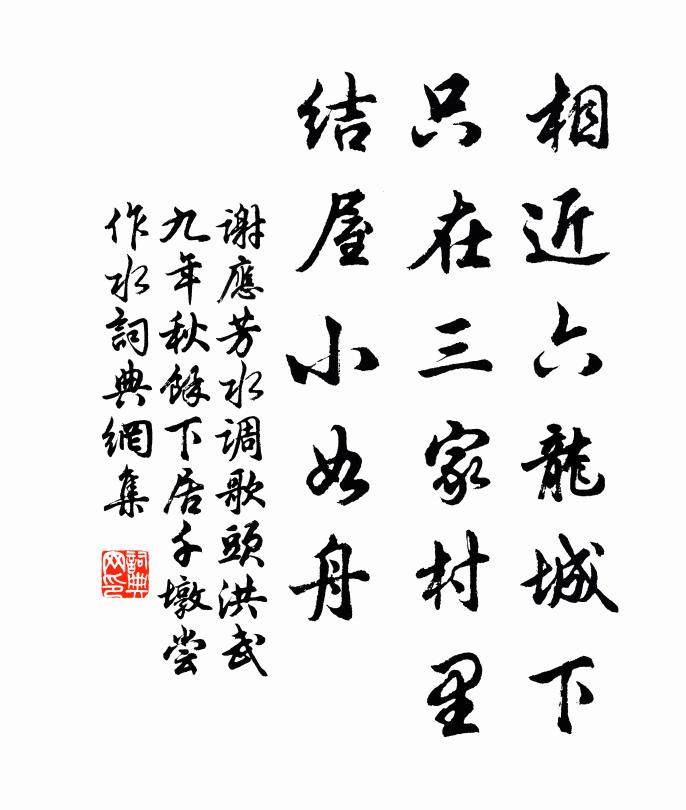 相近六龍城下
只在三家村里
结屋小如舟
谢應芳水调歌頭洪武
九年秋餘下居千墩尝
作水詞典網集
詞典網印